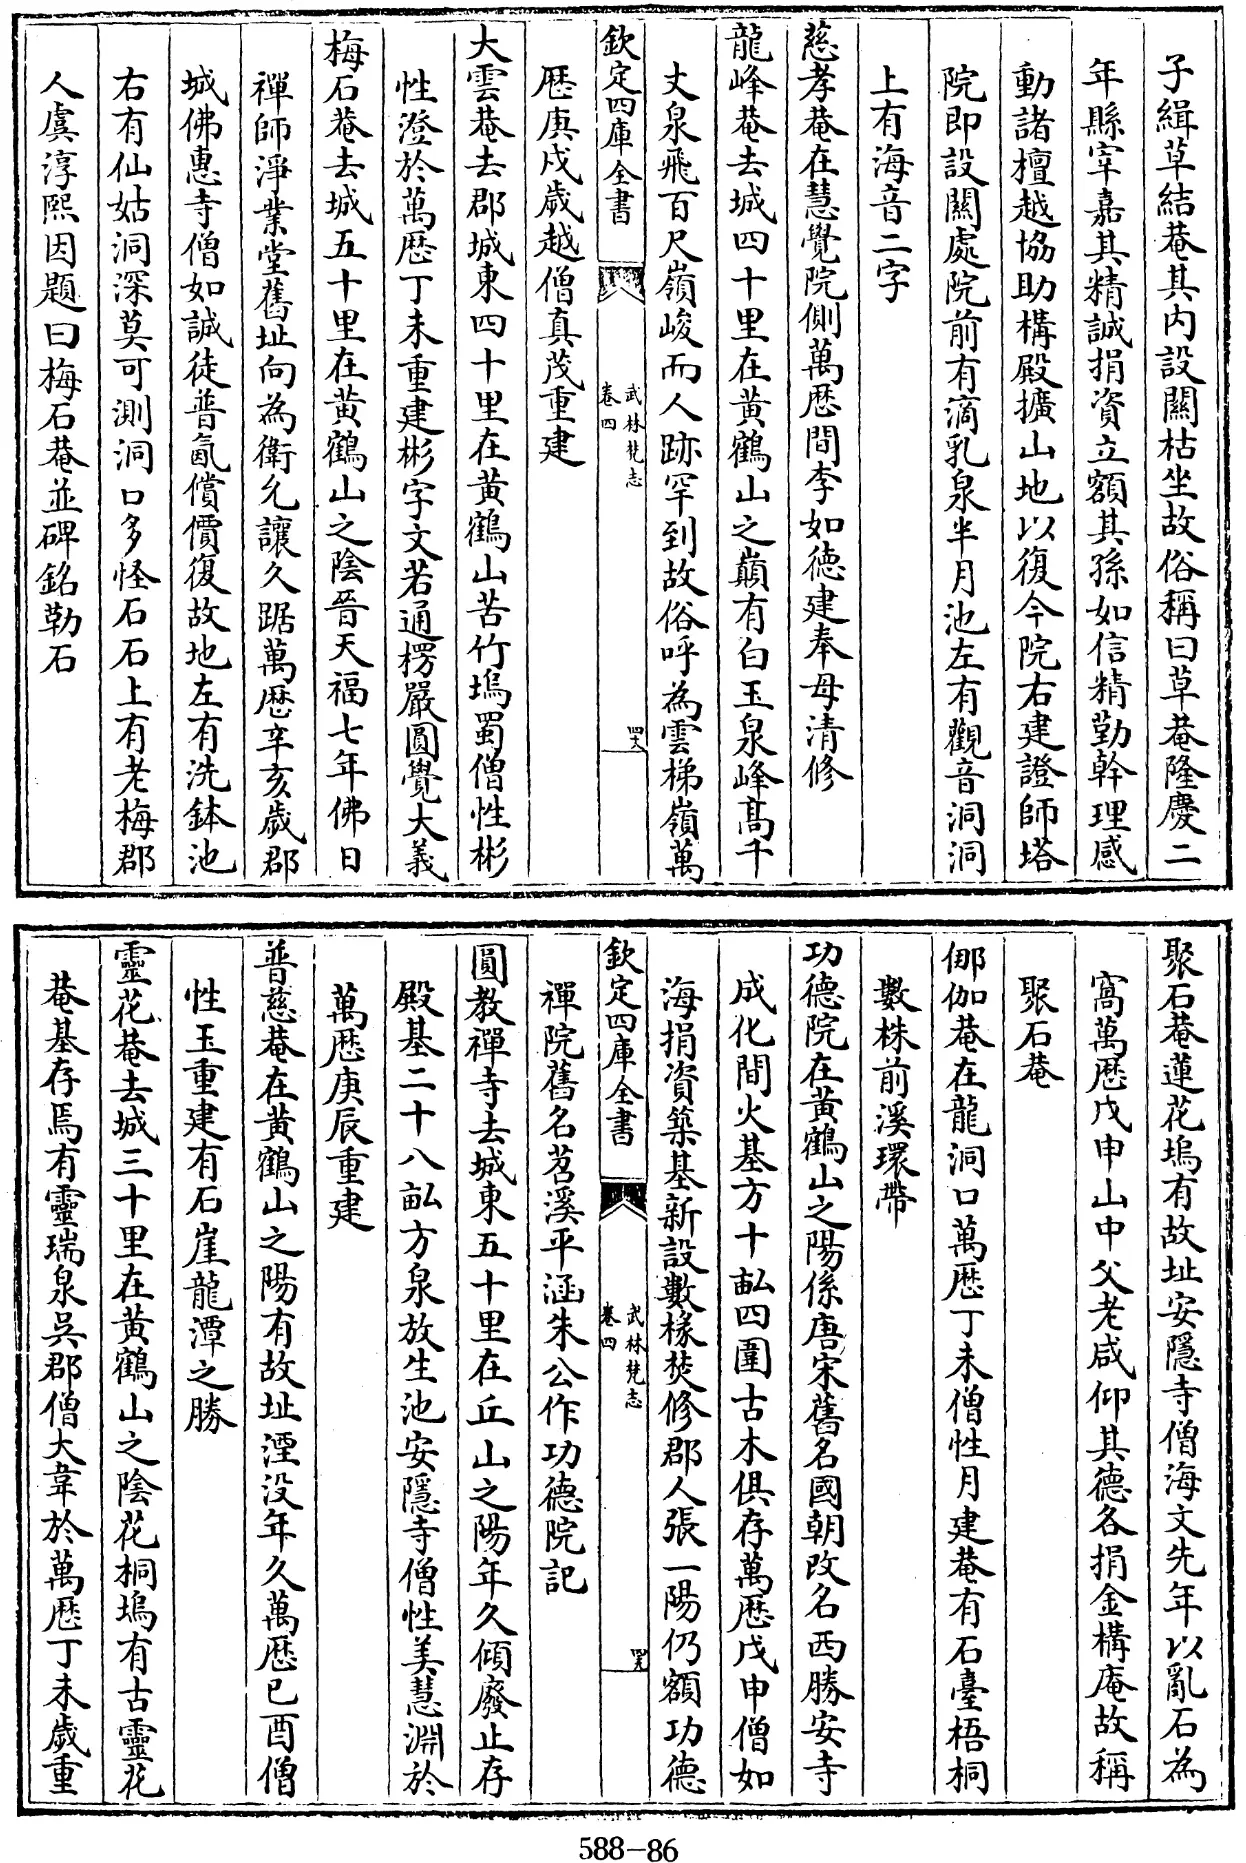 子緝草結菴其内設關枯坐故俗稱曰草菴隆慶二
年縣宰嘉其精誠捐資立額其孫如信精勤幹理感
動諸檀越協助構殿擴山地以復今院右建證師塔
院即設關處院前有滴乳泉半月池左有觀音洞洞
上有海音二字
慈孝菴在慧覺院側萬厯間李如德建奉母清修
龍峰菴去城四十里在黄鶴山之巔有白玉泉峰髙千
丈泉飛百尺嶺峻而人跡罕到故俗呼為雲梯嶺萬
欽定四庫全書
武林梵志
卷四
四六
厯庚戍歲越僧真茂重建
大雲菴去郡城東四十里在黄鶴山苦竹塢蜀僧性彬
性澄於萬厯丁未重建彬字文若通楞嚴圓覺大義
梅石菴去城五十里在黄鶴山之陰晉天福七年佛日
禪師淨業堂舊址向為衛允讓久踞萬厯辛亥歲郡
城佛惠寺僧如誠徒普氤償價復故地左有洗鉢池
右有仙姑洞深莫可測洞口多怪石石上有老梅郡
人虞淳熙因題曰梅石菴並碑銘勒石
聚石菴蓮花塢有故址安隱寺僧海文先年以亂石為
窩萬厯戊申山中父老咸仰其德各捐金構庵故稱
聚石菴
郍伽菴在龍洞口萬厯丁未僧性月建菴有石臺梧桐
數株前溪環帶
功德院在黄鶴山之陽係唐宋舊名國朝改名西勝安寺
成化間火基方十畝四圍古木俱存萬厯戊申僧如
海捐資築基新設數椽焚修郡人張一陽仍額功德
欽定四庫全書
武林梵志
卷四
四九
禪院舊名茗溪平涵朱公作功德院記
圓教禪寺去城東五十里在丘山之陽年久傾廢止存
殿基二十八畝方泉放生池安隱寺僧性美慧淵於
萬厯庚辰重建
普慈菴在黄鶴山之陽有故址湮没年久萬厯己酉僧
性玉重建有石崖龍潭之勝
靈花菴去城三十里在黄鶴山之陰花桐塢有古靈花
菴基存焉有靈瑞泉吳郡僧大韋於萬厯丁未歲重
588-86